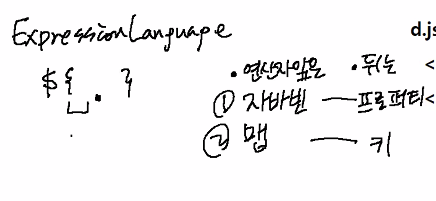 Expression Language
d.js
${ . }
.연산자앞은 .뒤는 <
① 자바빈 — 프로퍼티<
② 맵 — 키